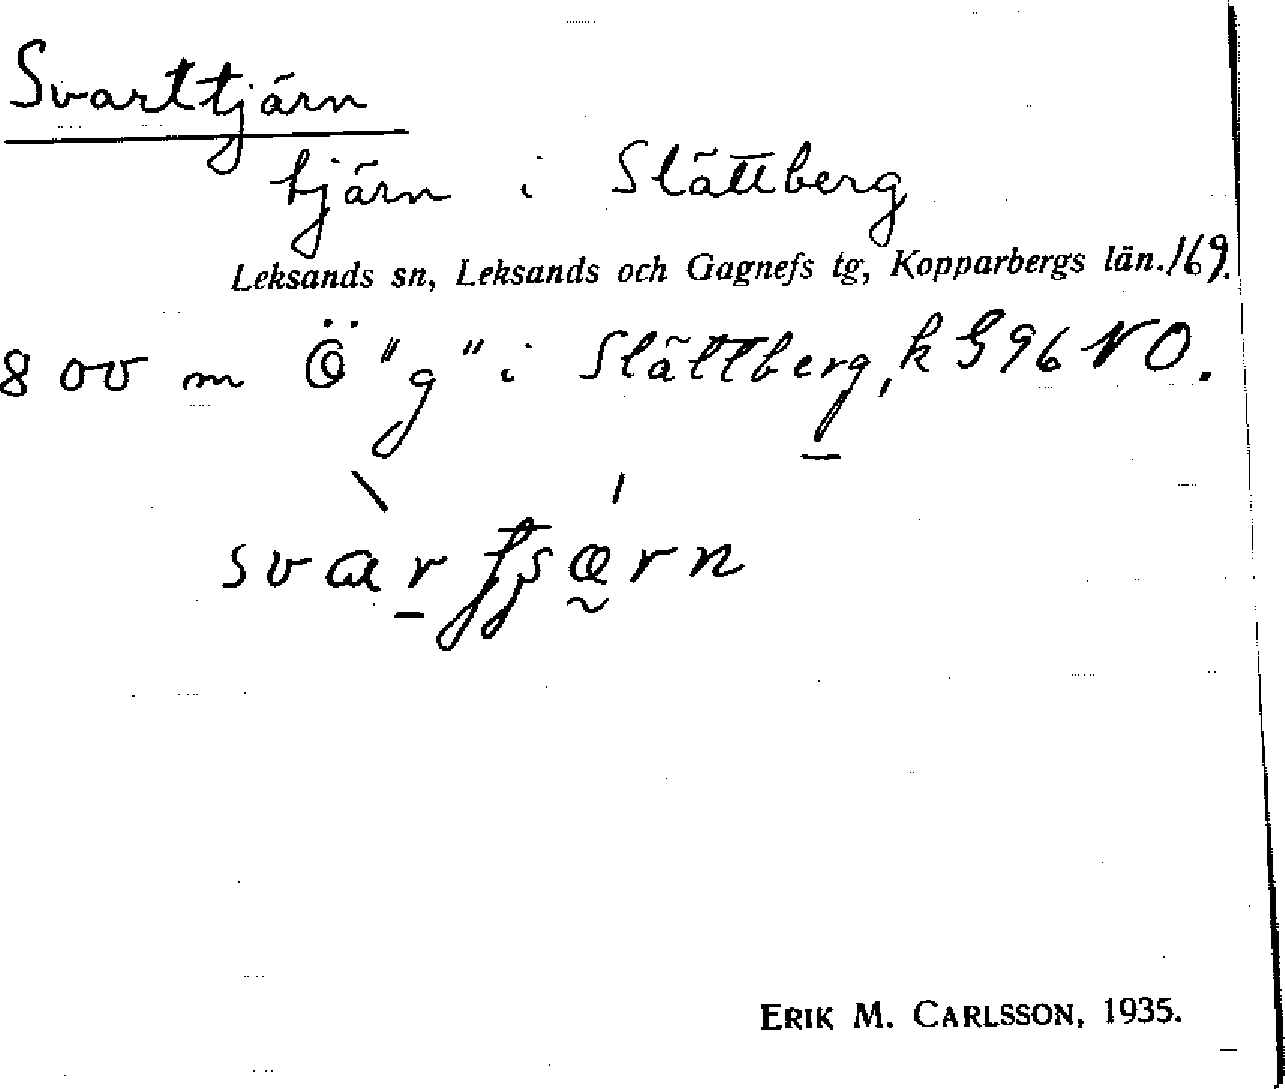 Svarttjärn
tjärn i Slättberg
Leksands sn, Leksands och Gagnefs tg, Kopparbergs län. 169.
800 m Ö "g" i Slättberg, k G 96 NO.
ERIK M. CARLSSON, 1935.